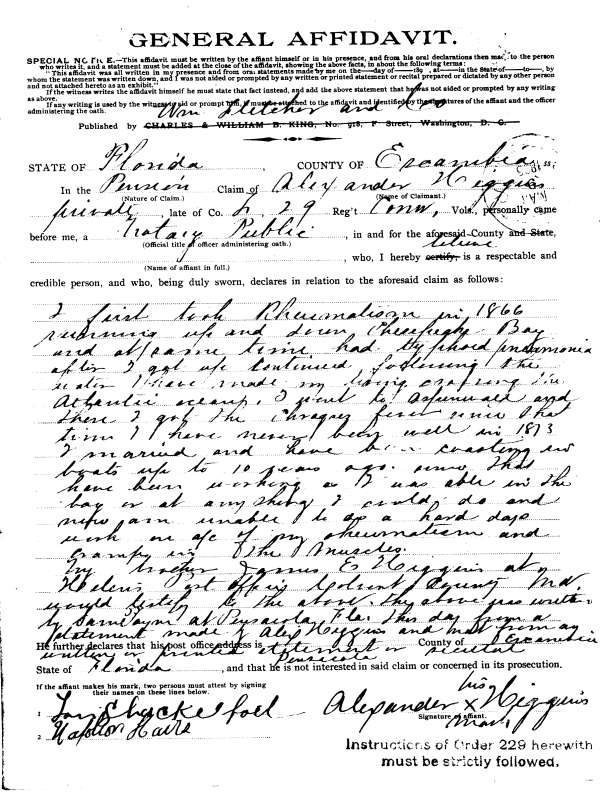 GENERAL AFFIDAVIT.
SPECIAL NOTICE.—This affidavit must be written by the affiant himself or in his presence, and from his oral declarations then made to the person
who writes it, and a statement must be added at the close of the affidavit, showing the above facts, in about the following terms:
"This affidavit was all written in my presence and from oral statements made by me on the —— day of —— 189 , at —— in the State of —— to ——, by
whom the statement was written down, and I was not aided or prompted by any written or printed statement or recital prepared or dictated by any other person
and not attached hereto as an exhibit."
If the witness writes the affidavit himself he must state that fact instead, and add the above statement that he was not aided or prompted by any writing
as above.
If any writing is used by the witness to aid or prompt him, it must be attached to the affidavit and identified by the signatures of the affiant and the officer
administering the oath.
Wm Fletcher and Co
Published by CHARLES & WILLIAM B. KING, No. 918, F Street, Washington, D. C.
STATE OF Florida , COUNTY OF Escambia , ss:
In the Pension Claim of Alexander Higgins
(Nature of Claim.) (Name of Claimant.)
private late of Co. 29 Reg't Conn, Vols., personally came
before me, a Notary Public , in and for the aforesaid County and State,
(Official title of officer administering oath.) believe
, who, I hereby certify, is a respectable and
(Name of affiant in full.)
credible person, and who, being duly sworn, declares in relation to the aforesaid claim as follows:
I first took Rheumatism in 1866
running up and down Bay
and at same time had typhoid pneumonia
after I got up continued following the
water I have made my living in
Atlantic ocean. I went to and
there I got the fever since that
time I have never been well in 1873
I married and have been coasting in
boats up to 10 years ago. since that
have been working as I was able in the
bay or at anything I could do and
now am unable to do a hard days
work on a/c of my rheumatism and
cramps in the muscles.
My brother James E Higgins at
Helens Post Office Calvert County Md.
would testify to the above. The above was written
by at Pensacola Fla. this day from a
statement made by Alex Higgins and not from any
written or printed or recital
He further declares that his post office address is Pensacola County of Escambia
State of Florida , and that he is not interested in said claim or concerned in its prosecution.
If the affiant makes his mark, two persons must attest by signing
their names on these lines below.
his
Alexander x Higgins
mark
Signature of affiant.
1
2
Instructions of Order 229 herewith
must be strictly followed.